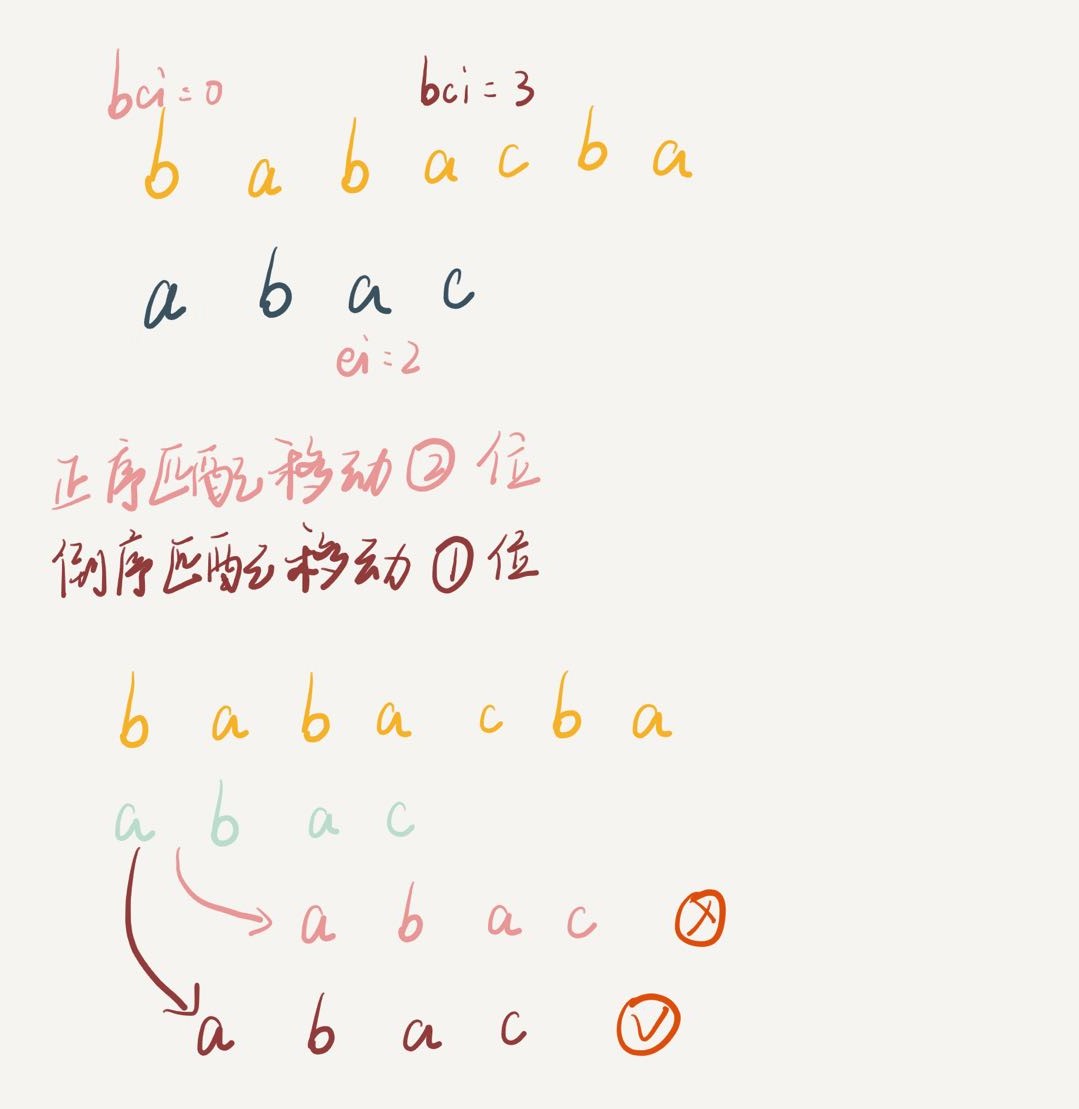 bci=0 bci=3
b a b a c b a
a b a c
ei=2
正序匹配移动②位
倒序匹配移动①位
b a b a c b a
a b a c
a b a c
a b a c